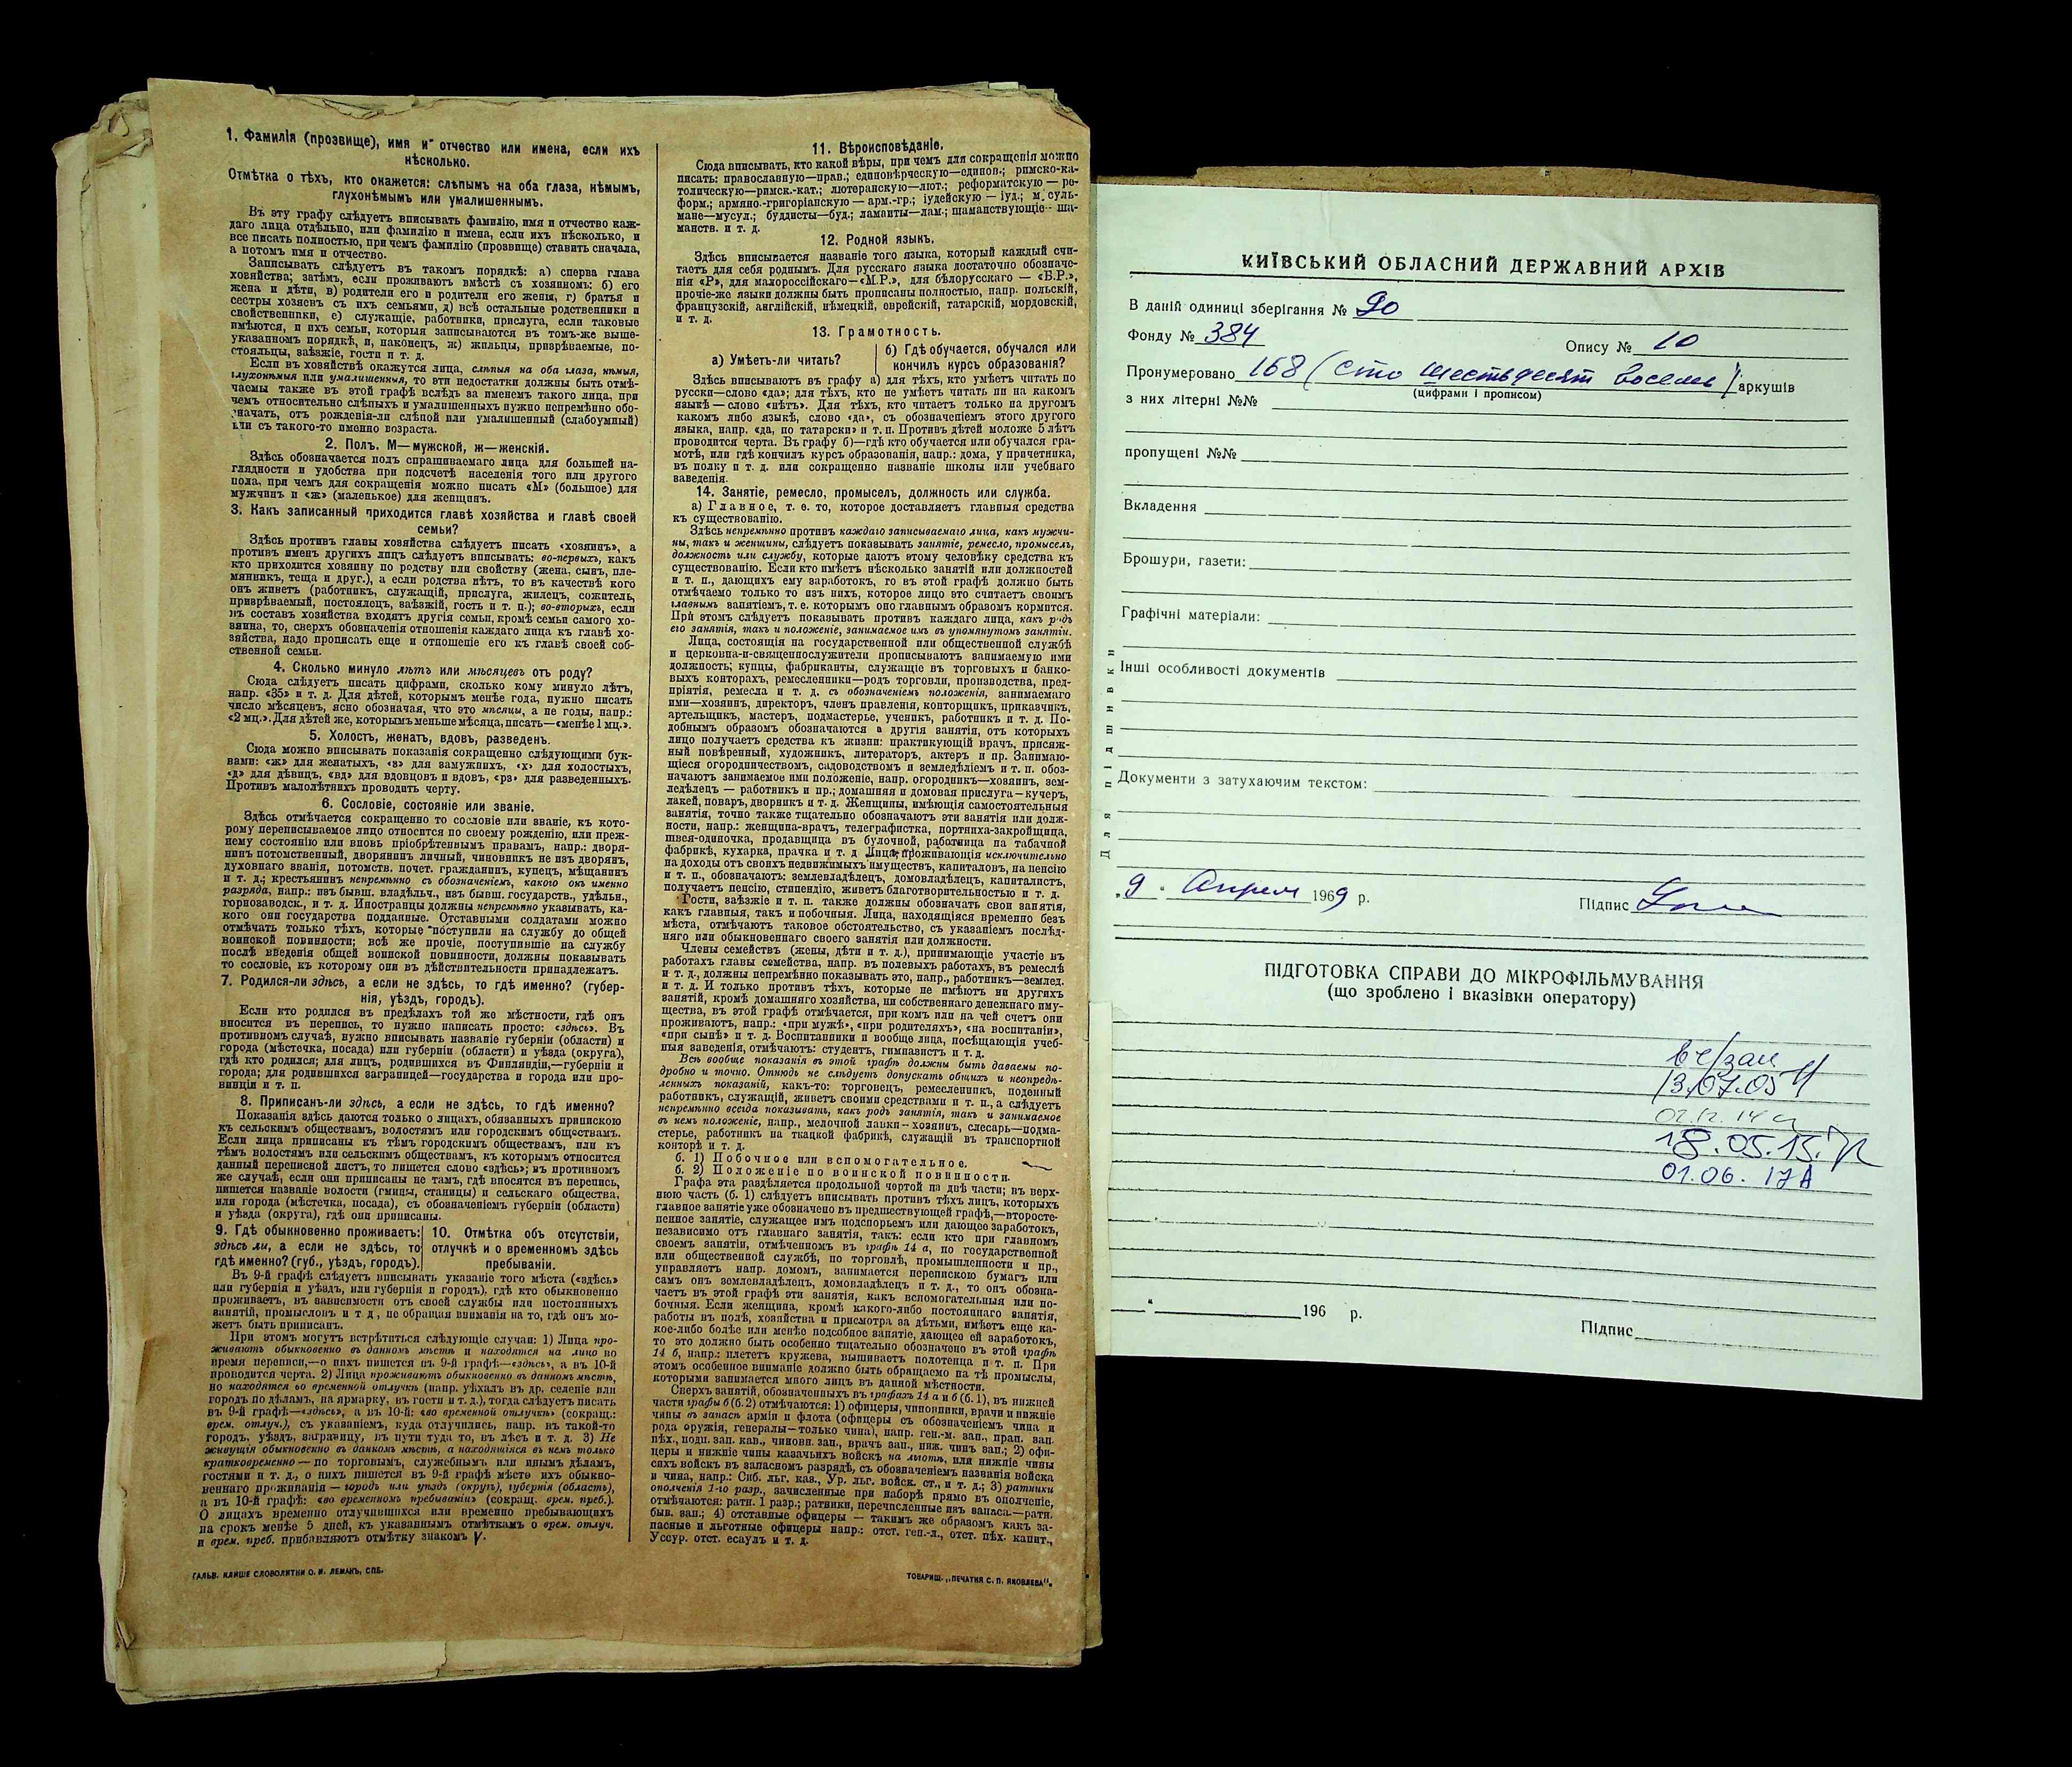 1. Фамилія (прозвище), имя и отчество или имена, если ихъ
нѣсколько.
Отмѣтка о тѣхъ, кто окажется: слѣпымъ на оба глаза, нѣмымъ,
глухонѣмымъ или умалишеннымъ.
Въ эту графу слѣдуетъ вписывать фамилію, имя и отчество каж-
даго лица отдѣльно, или фамилію и имена, если ихъ нѣсколько, и
все писать полностью, при чемъ фамилію (прозвище) ставить сначала,
а потомъ имя и отчество.
Записывать слѣдуетъ въ такомъ порядкѣ: а) сперва глава
хозяйства; затѣмъ, если проживаютъ вмѣстѣ съ хозяиномъ: б) его
жена и дѣти, в) родители его и родители его жены, г) братья и
сестры хозяевъ съ ихъ семьями, д) всѣ остальные родственники и
свойственники, е) служащіе, работники, прислуга, если таковые
имѣются, и ихъ семьи, которыя записываются въ томъ-же выше-
указанномъ порядкѣ, и, наконецъ, ж) жильцы, призрѣваемые, по-
стояльцы, заѣзжіе, гости и т. д.
Если въ хозяйствѣ окажутся лица, слѣпыя на оба глаза, нѣмыя,
глухонѣмыя или умалишенныя, то эти недостатки должны быть отмѣ-
чаемы также въ этой графѣ вслѣдъ за именемъ такого лица, при
чемъ относительно слѣпыхъ и умалишенныхъ нужно непремѣнно обо-
значать, отъ рожденія-ли слѣпой или умалишенный (слабоумный)
или съ такого-то именно возраста.
2. Полъ. М—мужской, ж—женскій.
Здѣсь обозначается полъ спрашиваемаго лица для большей на-
глядности и удобства при подсчетѣ населенія того или другого
пола, при чемъ для сокращенія можно писать «М» (большое) для
мужчинъ и «ж» (маленькое) для женщинъ.
3. Какъ записанный приходится главѣ хозяйства и главѣ своей
семьи?
Здѣсь противъ главы хозяйства слѣдуетъ писать «хозяинъ», а
противъ именъ другихъ лицъ слѣдуетъ вписывать: во-первыхъ, какъ
кто приходится хозяину по родству или свойству (жена, сынъ, пле-
мянникъ, теща и друг.), а если родства нѣтъ, то въ качествѣ кого
онъ живетъ (работникъ, служащій, прислуга, жилецъ, сожитель,
призрѣваемый, постоялецъ, заѣзжій, гость и т. п.); во-вторыхъ, если
въ составъ хозяйства входятъ другія семьи, кромѣ семьи самого хо-
зяина, то, сверхъ обозначенія отношенія каждаго лица къ главѣ хо-
зяйства, надо прописать еще и отношеніе его къ главѣ своей соб-
ственной семьи.
4. Сколько минуло лѣтъ или мѣсяцевъ отъ роду?
Сюда слѣдуетъ писать цифрами, сколько кому минуло лѣтъ,
напр. «35» и т. д. Для дѣтей, которымъ менѣе года, нужно писать
число мѣсяцевъ, ясно обозначая, что это мѣсяцы, а не годы, напр.:
«2 мц.». Для дѣтей же, которымъ меньше мѣсяца, писать—«менѣе 1 мц.».
5. Холостъ, женатъ, вдовъ, разведенъ.
Сюда можно вписывать показанія сокращенно слѣдующими бук-
вами: «ж» для женатыхъ, «з» для замужнихъ, «х» для холостыхъ,
«д» для дѣвицъ, «вд» для вдовцовъ и вдовъ, «рз» для разведенныхъ.
Противъ малолѣтнихъ проводить черту.
6. Сословіе, состояніе или званіе.
Здѣсь отмѣчается сокращенно то сословіе или званіе, къ кото-
рому переписываемое лицо относится по своему рожденію, или преж-
нему состоянію или вновь пріобрѣтеннымъ правамъ, напр.: дворя-
нинъ потомственный, дворянинъ личный, чиновникъ не изъ дворянъ,
духовнаго званія, потомств. почет. гражданинъ, купецъ, мѣщанинъ
и т. д.; крестьянинъ непремѣнно съ обозначеніемъ, какого онъ именно
разряда, напр.: изъ бывш. владѣльч., изъ бывш. государств., удѣльн.,
горнозаводск., и т. д. Иностранцы должны непремѣнно указывать, ка-
кого они государства подданные. Отставными солдатами можно
отмѣчать только тѣхъ, которые поступили на службу до общей
воинской повинности; всѣ же прочіе, поступившіе на службу
послѣ введенія общей воинской повинности, должны показывать
то сословіе, къ которому они въ дѣйствительности принадлежатъ.
7. Родился-ли здѣсь, а если не здѣсь, то гдѣ именно? (губер-
нія, уѣздъ, городъ).
Если кто родился въ предѣлахъ той же мѣстности, гдѣ онъ
вносится въ перепись, то нужно написать просто: «здѣсь». Въ
противномъ случаѣ, нужно вписывать названіе губерніи (области) и
города (мѣстечка, посада) или губерніи (области) и уѣзда (округа),
гдѣ кто родился; для лицъ, родившихся въ Финляндіи,—губерніи и
города; для родившихся заграницей—государства и города или про-
винціи и т. п.
8. Приписанъ-ли здѣсь, а если не здѣсь, то гдѣ именно?
Показанія здѣсь даются только о лицахъ, обязанныхъ припискою
къ сельскимъ обществамъ, волостямъ или городскимъ обществамъ.
Если лица приписаны къ тѣмъ городскимъ обществамъ, или къ
тѣмъ волостямъ или сельскимъ обществамъ, къ которымъ относится
данный переписной листъ, то пишется слово «здѣсь»; въ противномъ
же случаѣ, если они приписаны не тамъ, гдѣ вносятся въ перепись,
пишется названіе волости (гмины, станицы) и сельскаго общества,
или города (мѣстечка, посада), съ обозначеніемъ губерніи (области)
и уѣзда (округа), гдѣ они приписаны.
9. Гдѣ обыкновенно проживаетъ:
здѣсь ли, а если не здѣсь, то
гдѣ именно? (губ., уѣздъ, городъ).
10. Отмѣтка объ отсутствіи,
отлучкѣ и о временномъ здѣсь
пребываніи.
Въ 9-й графѣ слѣдуетъ вписывать указаніе того мѣста («здѣсь»
или губернія и уѣздъ, или губернія и городъ), гдѣ кто обыкновенно
проживаетъ, въ зависимости отъ своей службы или постоянныхъ
занятій, промысловъ и т. д., не обращая вниманія на то, гдѣ онъ мо-
жетъ быть приписанъ.
При этомъ могутъ встрѣтиться слѣдующіе случаи: 1) Лица про-
живаютъ обыкновенно въ данномъ мѣстѣ и находятся на лицо во
время переписи,—о нихъ пишется въ 9-й графѣ—«здѣсь», а въ 10-й
проводится черта. 2) Лица проживаютъ обыкновенно въ данномъ мѣстѣ,
но находятся во временной отлучкѣ (напр. уѣхалъ въ др. селеніе или
городъ по дѣламъ, на ярмарку, въ гости и т. д.), тогда слѣдуетъ писать
въ 9-й графѣ—«здѣсь», а въ 10-й: «во временной отлучкѣ» (сокращ.:
врем. отлуч.), съ указаніемъ, куда отлучились, напр. въ такой-то
городъ, уѣздъ, заграницу, въ пути туда то, въ лѣсъ и т. д. 3) Не
живущія обыкновенно въ данномъ мѣстѣ, а находящіяся въ немъ только
кратковременно — по торговымъ, служебнымъ или инымъ дѣламъ,
гостями и т. д., о нихъ пишется въ 9-й графѣ мѣсто ихъ обыкно-
веннаго проживанія — городъ или уѣздъ (округъ), губернія (область),
а въ 10-й графѣ: «во временномъ пребываніи» (сокращ. врем. преб.).
О лицахъ временно отлучившихся или временно пребывающихъ
на срокъ менѣе 5 дней, къ указаннымъ отмѣткамъ о врем. отлуч.
и врем. преб. прибавляютъ отмѣтку знакомъ V.
ГАЛЬВ. КЛИШЕ СЛОВОЛИТНИ О. И. ЛЕМАНЪ, СПБ.
11. Вѣроисповѣданіе.
Сюда вписывать, кто какой вѣры, при чемъ для сокращенія можно
писать: православную—прав.; единовѣрческую—единов.; римско-ка-
толическую—римск.-кат.; лютеранскую—лют.; реформатскую — ре-
форм.; армяно.-григоріанскую — арм.-гр.; іудейскую — іуд.; м. суль-
мане—мусул.; буддисты—буд.; ламаиты—лам.; шаманствующіе— ша-
манств. и т. д.
12. Родной языкъ.
Здѣсь вписывается названіе того языка, который каждый счи-
таетъ для себя роднымъ. Для русскаго языка достаточно обозначе-
нія «Р», для малороссійскаго—«М.Р.», для бѣлорусскаго — «Б.Р.»,
прочіе-же языки должны быть прописаны полностью, напр. польскій,
французскій, англійскій, нѣмецкій, еврейскій, татарскій, мордовскій,
и т. д.
13. Грамотность.
а) Умѣетъ-ли читать?
б) Гдѣ обучается, обучался или
кончилъ курсъ образованія?
Здѣсь вписываютъ въ графу а) для тѣхъ, кто умѣетъ читать по
русски—слово «да»; для тѣхъ, кто не умѣетъ читать ни на какомъ
языкѣ — слово «нѣтъ». Для тѣхъ, кто читаетъ только на другомъ
какомъ либо языкѣ, слово «да», съ обозначеніемъ этого другого
языка, напр. «да, по татарски» и т. п. Противъ дѣтей моложе 5 лѣтъ
проводится черта. Въ графу б)—гдѣ кто обучается или обучался гра-
мотѣ, или гдѣ кончилъ курсъ образованія, напр.: дома, у причетника,
въ полку и т. д. или сокращенно названіе школы или учебнаго
заведенія.
14. Занятіе, ремесло, промыселъ, должность или служба.
а) Главное, т. е. то, которое доставляетъ главныя средства
къ существованію.
Здѣсь непремѣнно противъ каждаго записываемаго лица, какъ мужчи-
ны, такъ и женщины, слѣдуетъ показывать занятіе, ремесло, промыселъ,
должность или службу, которые даютъ этому человѣку средства къ
существованію. Если кто имѣетъ нѣсколько занятій или должностей
и т. п., дающихъ ему заработокъ, то въ этой графѣ должно быть
отмѣчаемо только то изъ нихъ, которое лицо это считаетъ своимъ
главнымъ занятіемъ, т. е. которымъ оно главнымъ образомъ кормится.
При этомъ слѣдуетъ показывать противъ каждаго лица, какъ родъ
его занятія, такъ и положеніе, занимаемое имъ въ упомянутомъ занятіи.
Лица, состоящія на государственной или общественной службѣ
и церковна-и-священнослужители прописываютъ занимаемую ими
должность; купцы, фабриканты, служащіе въ торговыхъ и банко-
выхъ конторахъ, ремесленники—родъ торговли, производства, пред-
пріятія, ремесла и т. д. съ обозначеніемъ положенія, занимаемаго
ими—хозяинъ, директоръ, членъ правленія, конторщикъ, приказчикъ,
артельщикъ, мастеръ, подмастерье, ученикъ, работникъ и т. д. По-
добнымъ образомъ обозначаются и другія занятія, отъ которыхъ
лицо получаетъ средства къ жизни: практикующій врачъ, присяж-
ный повѣренный, художникъ, литераторъ, актеръ и пр. Занимаю-
щіеся огородничествомъ, садоводствомъ и земледѣліемъ и т. п. обоз-
начаютъ занимаемое ими положеніе, напр. огородникъ—хозяинъ, зем-
ледѣлецъ — работникъ и пр.; домашняя и домовая прислуга—кучеръ,
лакей, поваръ, дворникъ и т. д. Женщины, имѣющія самостоятельныя
занятія, точно также тщательно обозначаютъ эти занятія или долж-
ности, напр.: женщина-врачъ, телеграфистка, портниха-закройщица,
швея-одиночка, продавщица въ булочной, работница на табачной
фабрикѣ, кухарка, прачка и т. д. Лица, проживающія исключительно
на доходы отъ своихъ недвижимыхъ имуществъ, капиталовъ, на пенсію
и т. п., обозначаютъ: землевладѣлецъ, домовладѣлецъ, капиталистъ,
получаетъ пенсію, стипендію, живетъ благотворительностью и т. д.
Гости, заѣзжіе и т. п. также должны обозначать свои занятія,
какъ главныя, такъ и побочныя. Лица, находящіяся временно безъ
мѣста, отмѣчаютъ таковое обстоятельство, съ указаніемъ послѣд-
няго или обыкновеннаго своего занятія или должности.
Члены семействъ (жены, дѣти и т. д.), принимающіе участіе въ
работахъ главы семейства, напр. въ полевыхъ работахъ, въ ремеслѣ
и т. д., должны непремѣнно показывать это, напр., работникъ—землед.
и т. д. И только противъ тѣхъ, которые не имѣютъ ни другихъ
занятій, кромѣ домашняго хозяйства, ни собственнаго денежнаго иму-
щества, въ этой графѣ отмѣчается, при комъ или на чей счетъ они
проживаютъ, напр.: «при мужѣ», «при родителяхъ», «на воспитаніи»,
«при сынѣ» и т. д. Воспитанники и вообще лица, посѣщающія учеб-
ныя заведенія, отмѣчаютъ: студентъ, гимназистъ и т. д.
Всѣ вообще показанія въ этой графѣ должны быть даваемы по-
дробно и точно. Отнюдь не слѣдуетъ допускать общихъ и неопредѣ-
ленныхъ показаній, какъ-то: торговецъ, ремесленникъ, поденный
работникъ, служащій, живетъ своими средствами и т. п., а слѣдуетъ
непремѣнно всегда показывать, какъ родъ занятія, такъ и занимаемое
въ немъ положеніе, напр., мелочной лавки—хозяинъ, слесарь—подма-
стерье, работникъ на ткацкой фабрикѣ, служащій въ транспортной
конторѣ и т. д.
б. 1) Побочное или вспомогательное.
б. 2) Положеніе по воинской повинности.
Графа эта раздѣляется продольной чертой на двѣ части; въ верх-
нюю часть (б. 1) слѣдуетъ вписывать противъ тѣхъ лицъ, которыхъ
главное занятіе уже обозначено въ предшествующей графѣ,—второсте-
пенное занятіе, служащее имъ подспорьемъ или дающее заработокъ,
независимо отъ главнаго занятія, такъ: если кто при главномъ
своемъ занятіи, отмѣченномъ въ графѣ 14 а, по государственной
или общественной службѣ, по торговлѣ, промышленности и пр.,
управляетъ напр. домомъ, занимается перепискою бумагъ или
самъ онъ землевладѣлецъ, домовладѣлецъ и т. д., то онъ обозна-
чаетъ въ этой графѣ эти занятія, какъ вспомогательныя или по-
бочныя. Если женщина, кромѣ какого-либо постояннаго занятія,
работы въ полѣ, хозяйства и присмотра за дѣтьми, имѣетъ еще ка-
кое-либо болѣе или менѣе подсобное занятіе, дающее ей заработокъ,
то это должно быть особенно тщательно обозначено въ этой графѣ
14 б, напр.: плететъ кружева, вышиваетъ полотенца и т. п. При
этомъ особенное вниманіе должно быть обращаемо на тѣ промыслы,
которыми занимается много лицъ въ данной мѣстности.
Сверхъ занятій, обозначенныхъ въ графахъ 14 а и б (б. 1), въ нижней
части графы б (б. 2) отмѣчаются: 1) офицеры, чиновники, врачи и нижніе
чины въ запасѣ арміи и флота (офицеры съ обозначеніемъ чина и
рода оружія, генералы—только чина), напр. ген.-м. зап., прап. зап.
пѣх., подп. зап. кав., чиновн. зап., врачъ зап., ниж. чинъ зап.; 2) офи-
церы и нижніе чины казачьихъ войскъ на льготѣ, или нижніе чины
сихъ войскъ въ запасномъ разрядѣ, съ обозначеніемъ названія войска
и чина, напр.: Сиб. льг. каз., Ур. льг. войск. ст., и т. д.; 3) ратники
ополченія 1-го разр., зачисленные при наборѣ прямо въ ополченіе,
отмѣчаются: ратн. 1 разр.; ратники, перечисленные изъ запаса.—ратн.
быв. зап.; 4) отставные офицеры — такимъ же образомъ какъ за-
пасные и льготные офицеры напр.: отст. ген.-л., отст. пѣх. капит.,
Уссур. отст. есаулъ и т. д.
ТОВАРИЩ. „ПЕЧАТНЯ С. П. ЯКОВЛЕВА".
КИЇВСЬКИЙ ОБЛАСНИЙ ДЕРЖАВНИЙ АРХІВ
В даній одиниці зберігання № 90
Фонду № 384 Опису № 10
Пронумеровано 168 (сто шестьдесят восемь) аркушів
(цифрами і прописом)
з них літерні №№
пропущені №№
Вкладення
Брошури, газети:
Графічні матеріали:
Інші особливості документів
Документи з затухаючим текстом:
Для підшивки
„9" Апреля 1969 р. Підпис
ПІДГОТОВКА СПРАВИ ДО МІКРОФІЛЬМУВАННЯ
(що зроблено і вказівки оператору)
13.07.05
02.12.14
18.05.15.
01.06.17А
" 196 р. Підпис